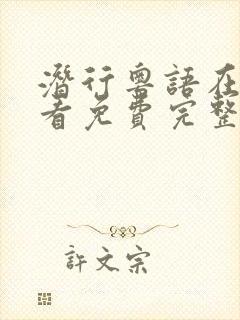 潛行粵語在
看免費完整
許文宗